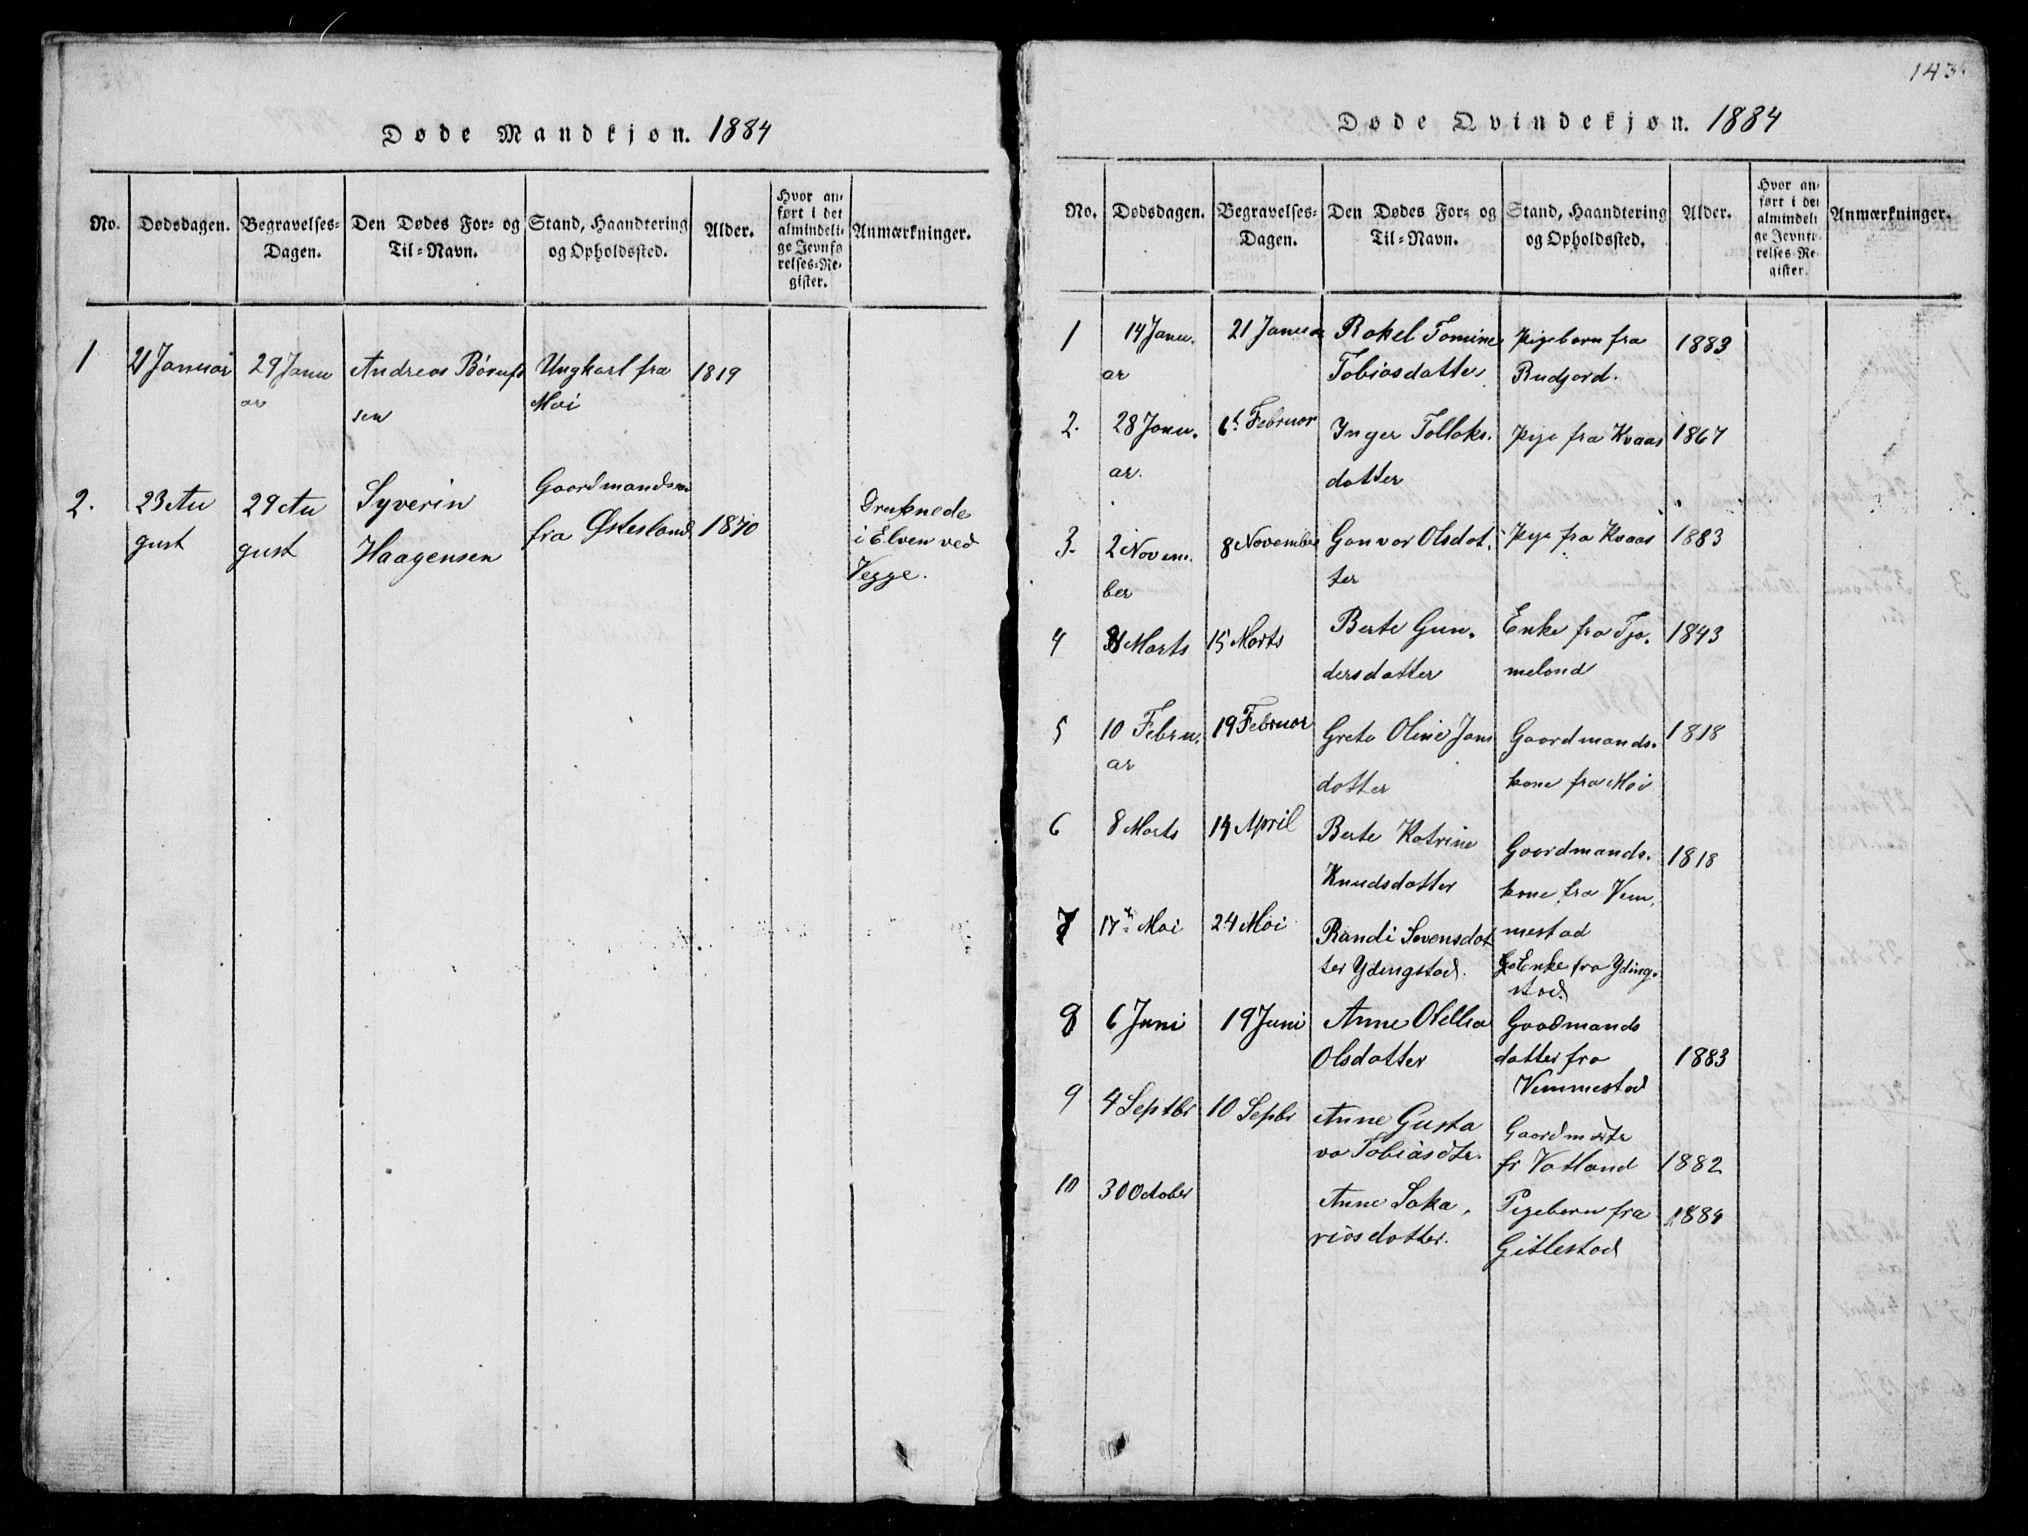 Døde Mandkjøn. 1884
No.
Dødsdagen.
Begravelses-
Dagen.
Den Dødes For- og
Til-Navn.
Stand, Haandtering
og Opholdssted.
Alder.
Hvor an-
ført i det
almindeli-
ge Jevnfø
relses-Re-
gister.
Anmærkninger.
1
21 Januar
29 Janu
ar
Andreas
sen
Ungkarl fra
Moi
1819
2.
23 Au
gust
29 Au
gust
Syverin
Haagensen
Gaardmandsøn
fra Østesland
1870
Druknede
i Elven ved
Vegge.
143
Døde Qvindekjøn. 1884
No.
Dødsdagen.
Begravelses-
Dagen.
Den Dødes For- og
Til-Navn.
Stand, Haandtering
og Opholdssted.
Alder.
Hvor an-
ført i det
almindeli
ge Jevnfø-
relses-Re-
gister.
Anmærkninger.
1
14 Janu.
ar
21 Januar
Rakel Tomine
Tobiasdatter
Pigebarn fra
Rudjord.
1883
2.
28 Janu.
ar.
6t Februar
Inger Tolloks.
datter
Pige fra Kvaas
1867
3.
2 Novem.
ber
8 November
Gonvor Olsdat.
ter
Pige fra Kvaas
1883
4
8 Marts
15 Marts
Berte Gun.
dersdatter
Enke fra Tjo.
meland
1843
5
10 Febru.
ar
19 Februar
Grete Oline Jans
datter
Gaardmands.
kone fra Moi
1818
6
8 Marts
14 April
Berte Katrine
Knudsdatter
Gaardmands.
kone fra Vem,
mestad
1818
7
17de Mai
24 Mai
Randi Svensdat
ter Ydingstad.
Enke fra Yding.
stad
8
6 Juni
19 Juni
Anne Olellia
Olsdatter
Gaadmands
datter fra
Vemmestad
1883
9
4 Septbr
10 Sepbr
Anne Gusta
va Tobiasdtr.
Gaardm dtr
fr Vatland
1882
10
30 October
Anne Saka,
riasdatter.
Pigebarn fra
Gitlestad
1884